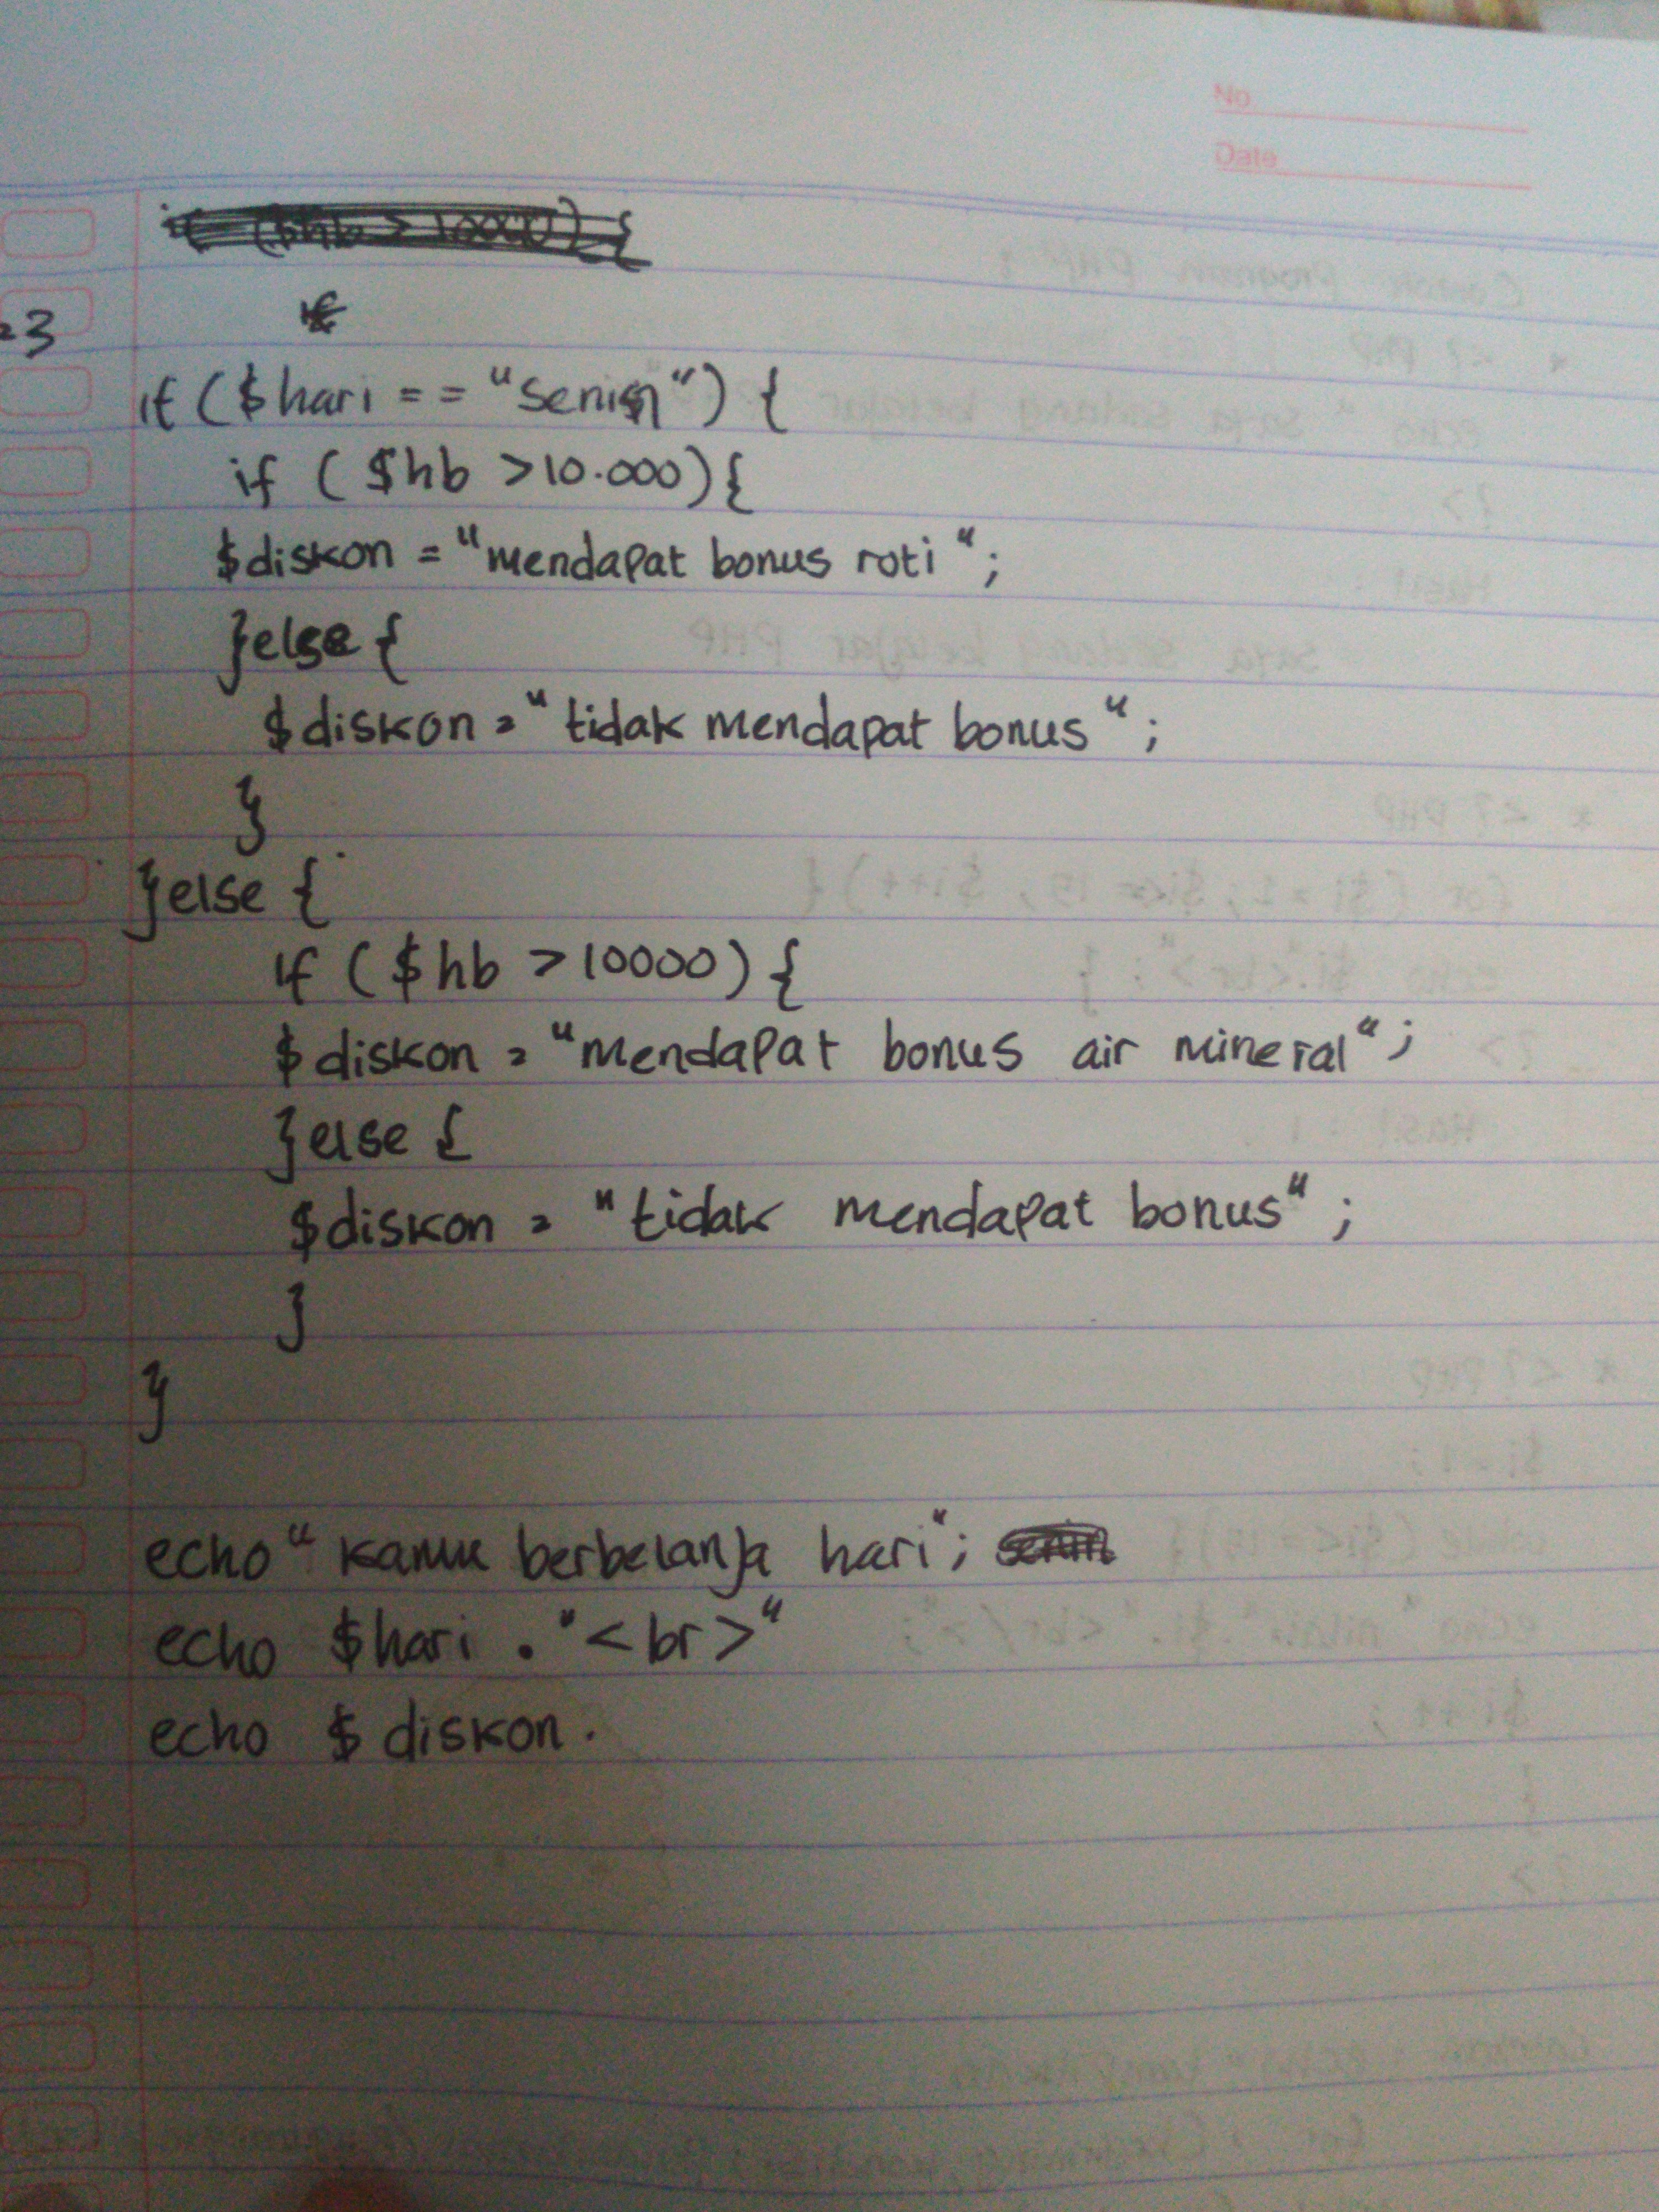 No
Date
if ($hb > 10000) {
23
if ($hari == "Senin") {
if ($hb >10.000){
$diskon = "mendapat bonus roti";
}else {
$diskon = "tidak mendapat bonus";
}
}else {
if ($hb >10000) {
$diskon = "mendapat bonus air mineral";
}else {
$diskon = "tidak mendapat bonus";
}
}
echo "kamu berbelanja hari"; senin
echo $hari . "<br>"
echo $diskon.